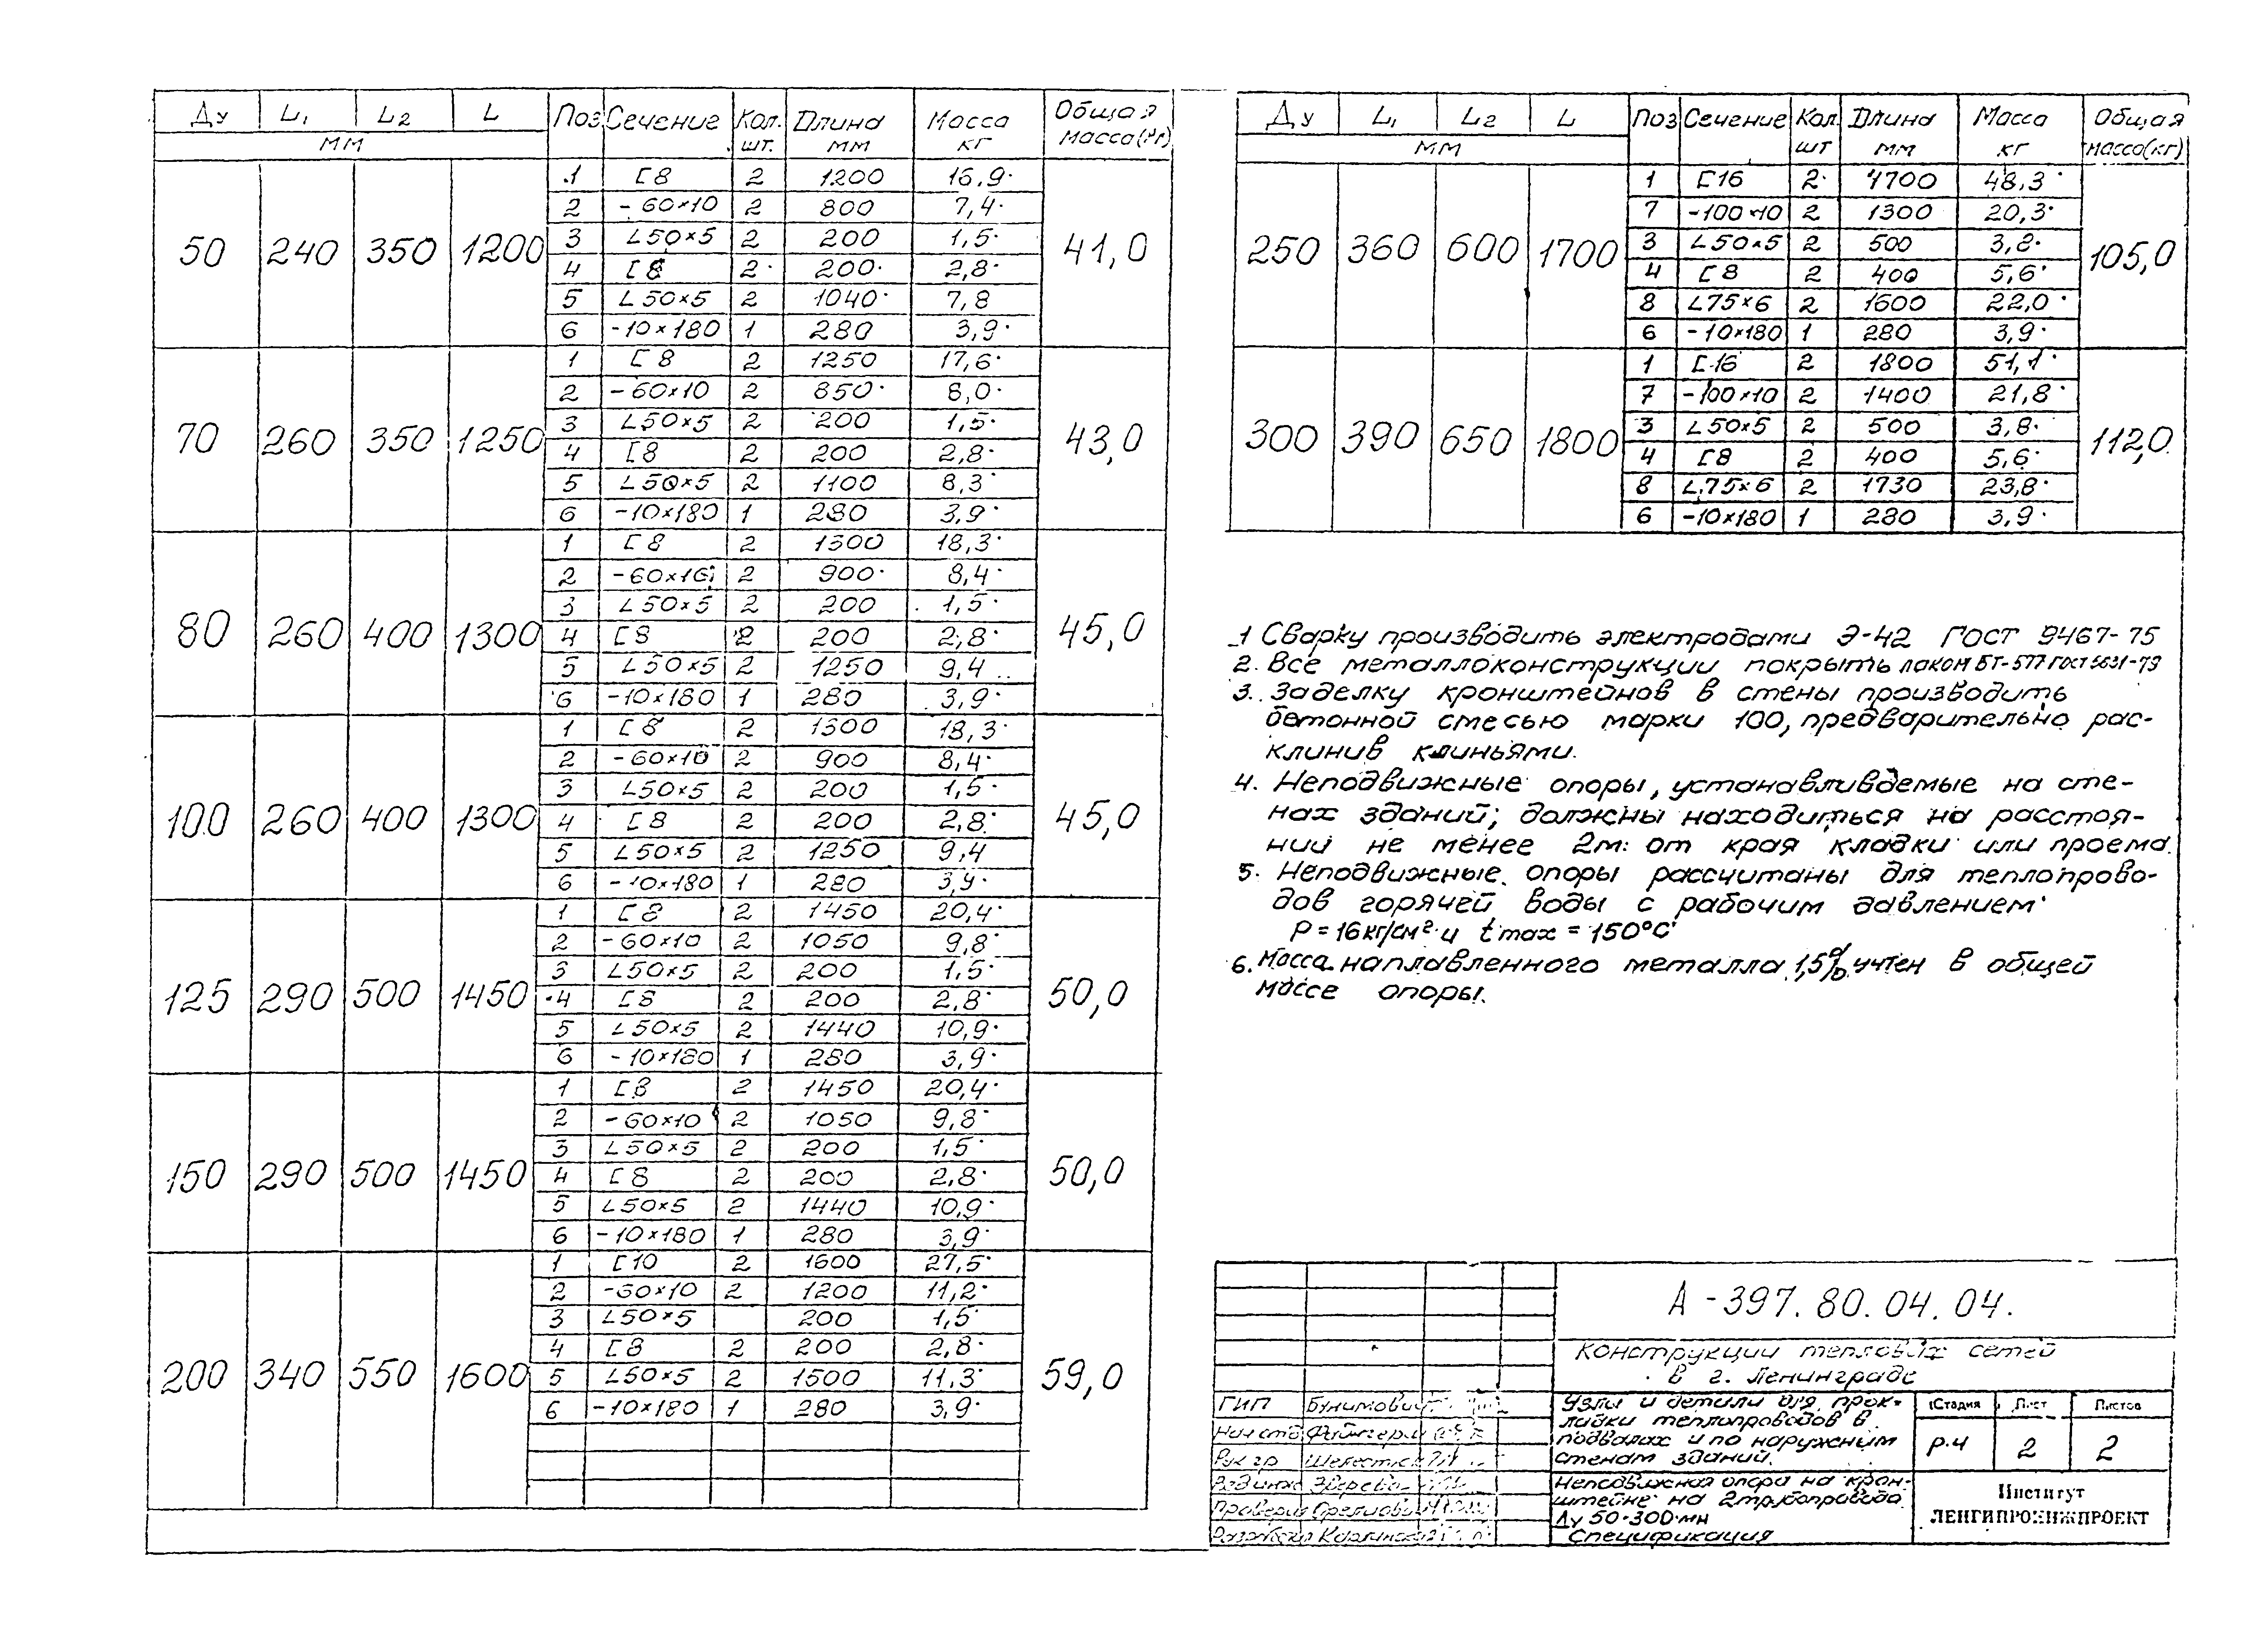 Ду L1 L2 L Поз Сечение Кол. шт. Длина мм Масса кг Общая масса(кг)
мм
50 240 350 1200 41,0
1 [8 2 1200 16,9
2 -60×10 2 800 7,4
3 L50×5 2 200 1,5
4 [8 2 200 2,8
5 L50×5 2 1040 7,8
6 -10×180 1 280 3,9
70 260 350 1250 43,0
1 [8 2 1250 17,6
2 -60×10 2 850 8,0
3 L50×5 2 200 1,5
4 [8 2 200 2,8
5 L50×5 2 1100 8,3
6 -10×180 1 280 3,9
80 260 400 1300 45,0
1 [8 2 1300 18,3
2 -60×10 2 900 8,4
3 L50×5 2 200 1,5
4 [8 2 200 2,8
5 L50×5 2 1250 9,4
6 -10×180 1 280 3,9
100 260 400 1300 45,0
1 [8 2 1300 18,3
2 -60×10 2 900 8,4
3 L50×5 2 200 1,5
4 [8 2 200 2,8
5 L50×5 2 1250 9,4
6 -10×180 1 280 3,9
125 290 500 1450 50,0
1 [8 2 1450 20,4
2 -60×10 2 1050 9,8
3 L50×5 2 200 1,5
4 [8 2 200 2,8
5 L50×5 2 1440 10,9
6 -10×180 1 280 3,9
150 290 500 1450 50,0
1 [8 2 1450 20,4
2 -60×10 2 1050 9,8
3 L50×5 2 200 1,5
4 [8 2 200 2,8
5 L50×5 2 1440 10,9
6 -10×180 1 280 3,9
200 340 550 1600 59,0
1 [10 2 1600 27,5
2 -60×10 2 1200 11,2
3 L50×5 200 1,5
4 [8 2 200 2,8
5 L50×5 2 1500 11,3
6 -10×180 1 280 3,9
Ду L1 L2 L Поз Сечение Кол. шт Длина мм Масса кг Общая масса(кг)
мм
250 360 600 1700 105,0
1 [16 2 1700 48,3
7 -100×10 2 1300 20,3
3 L50×5 2 500 3,8
4 [8 2 400 5,6
8 L75×6 2 1600 22,0
6 -10×180 1 280 3,9
300 390 650 1800 112,0
1 [16 2 1800 51,1
7 -100×10 2 1400 21,8
3 L50×5 2 500 3,8
4 [8 2 400 5,6
8 L75×6 2 1730 23,8
6 -10×180 1 280 3,9
1 Сварку производить электродами Э-42 ГОСТ 9467-75
2. Все металлоконструкции покрыть лаком БТ-577 ГОСТ 5631-79
3. Заделку кронштейнов в стены производить
бетонной смесью марки 100, предварительно рас-
клинив клиньями.
4. Неподвижные опоры, устанавливаемые на сте-
нах зданий; должны находиться на расстоя-
нии не менее 2м. от края кладки или проема.
5. Неподвижные опоры рассчитаны для теплопрово-
дов горячей воды с рабочим давлением
P = 16 кг/см² и tmax = 150°C
6. Масса наплавленного металла 1,5% учтен в общей
массе опоры.
А-397.80.04.04.
Конструкции тепловых сетей
в г. Ленинграде
ГИП
Рук гр
Узлы и детали для прок-
ладки теплопроводов в
подвалах и по наружным
стенам зданий.
Стадия Лист Листов
Р.Ч 2 2
Неподвижная опора на крон-
штейне на 2трубопровода
Ду 50-300 мм
Спецификация
Институт
ЛЕНГИПРОИНЖПРОЕКТ